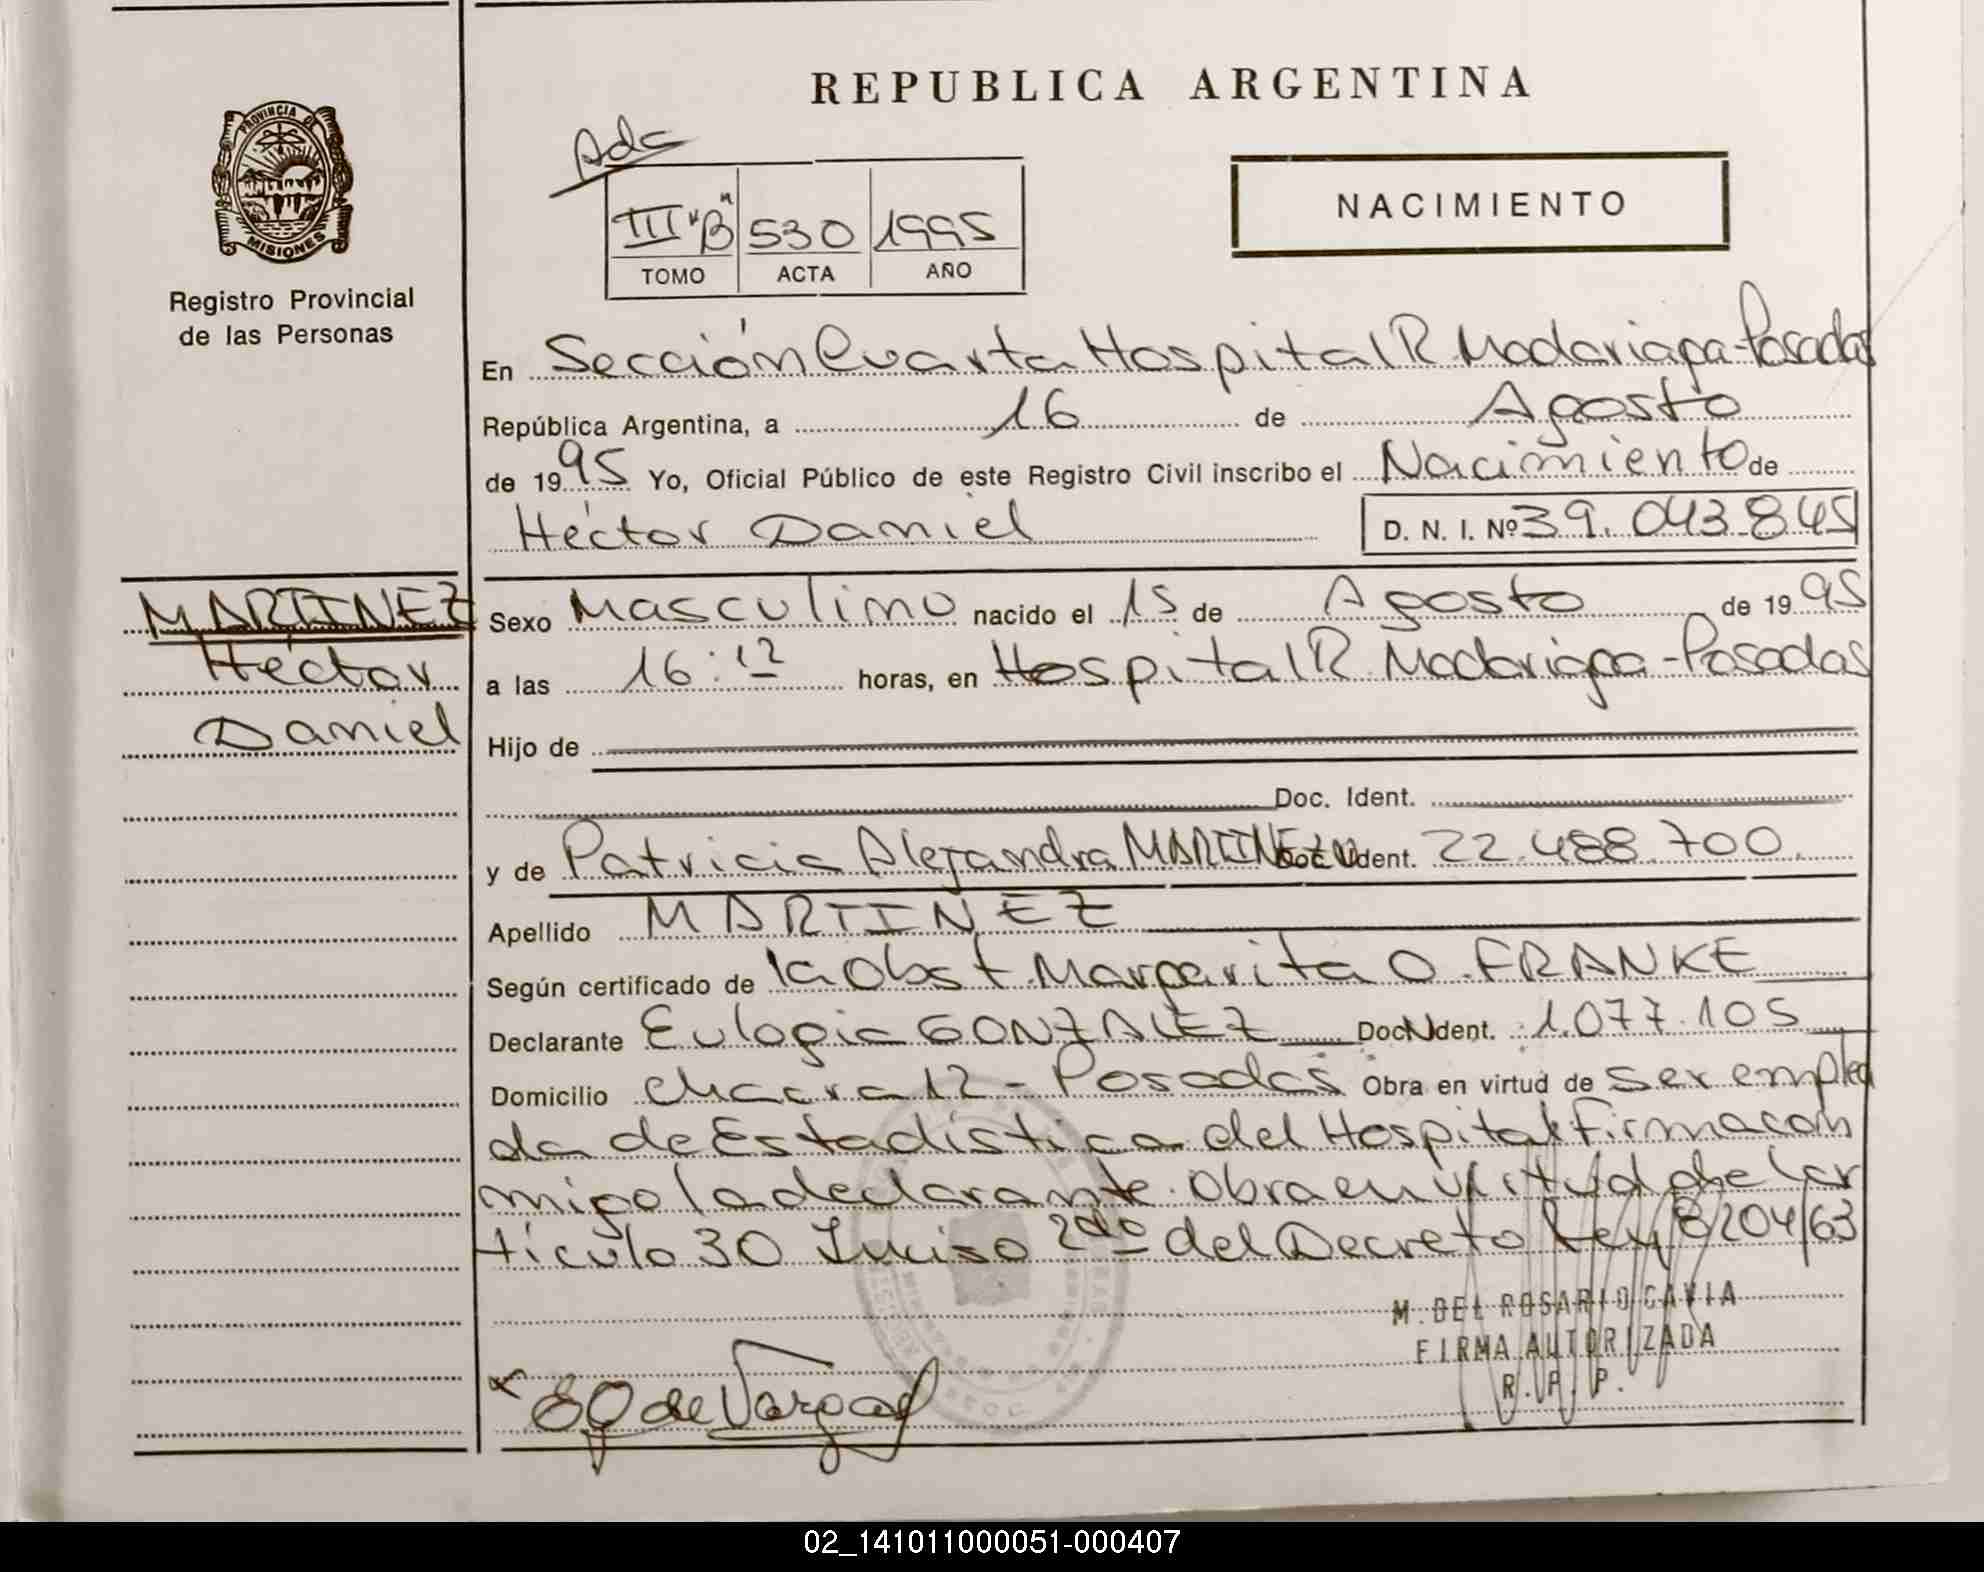 REPUBLICA ARGENTINA
Adc
III "B" 530 1995
TOMO ACTA AÑO
NACIMIENTO
PROVINCIA DE
MISIONES
Registro Provincial
de las Personas
En Sección Cuarta Hospital R. Madariaga-Posadas
República Argentina, a 16 de Agosto
de 1995 Yo, Oficial Público de este Registro Civil inscribo el Nacimiento de
Héctor Daniel D. N. I. Nº 39.043.845
MARTINEZ
Héctor
Daniel
Sexo Masculino nacido el 15 de Agosto de 1995
a las 16:12 horas, en Hospital R. Madariaga-Posadas
Hijo de
Doc. Ident.
y de Patricia Alejandra MARTINEZ Doc. Ident. 22.488.700
Apellido MARTINEZ
Según certificado de la Obst. Margarita O. FRANKE
Declarante Eulogia GONZALEZ Doc. Ident. 1.077.105
Domicilio Chacra 12 - Posadas Obra en virtud de ser emplea
da de Estadística del Hospital Firma con
migo la declarante. Obra en virtud del ar
tículo 30 Inciso 2do del Decreto Ley 8204/63
M. DEL ROSARIO GAVIA
FIRMA AUTORIZADA
R. P. P.
EG de Vargas
02_141011000051-000407